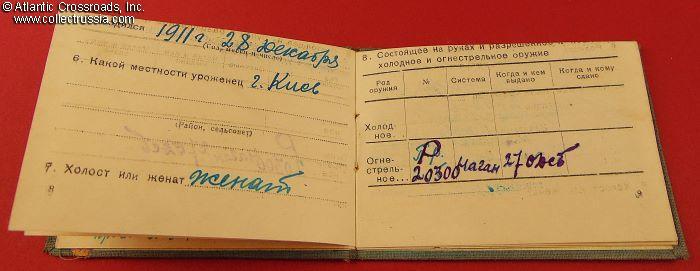 © Atlantic Crossroads, Inc.
www.collectrussia.com
1911 г. 28 декабря
6. Какой местности уроженец г. Киев
(Район, сельсовет)
7. Холост или женат женат
8
8. Состоящее на руках и разрешенное
холодное и огнестрельное оружие
Род оружия
№
Система
Когда и кем выдано
Когда и кому сдано
Холод-
ное
Огне-
стрель-
ное... 20300 Наган 27
9